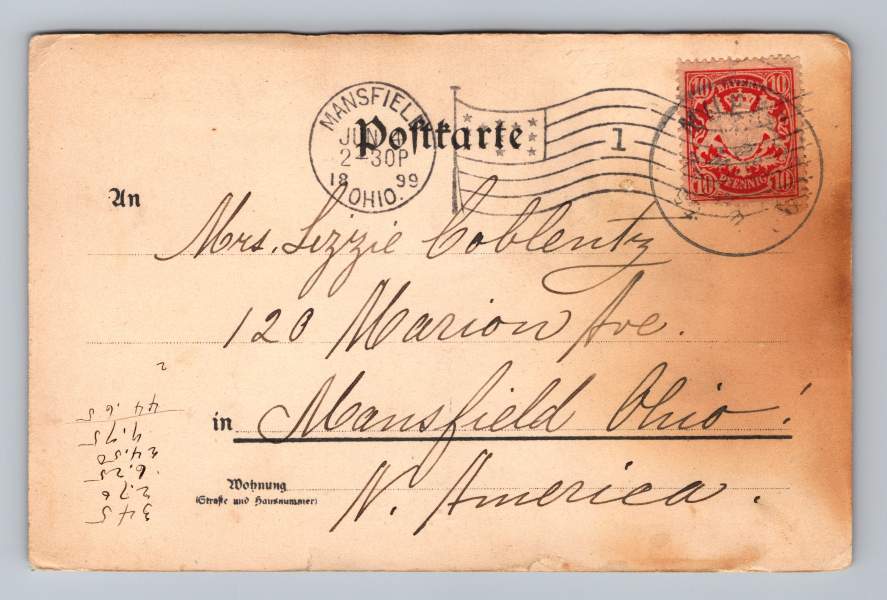 MANSFIELD
JUN
2-30P
18 99
OHIO.
1
Postkarte
10 BAYERN 10
10 PFENNIG 10
An
Mrs. Lizzie Coblentz
120 Marion Ave.
in Mansfield Ohio!
N. America.
Wohnung
(Straße und Hausnummer)
345
2.70
6.25
24.50
9.75
44.65
2